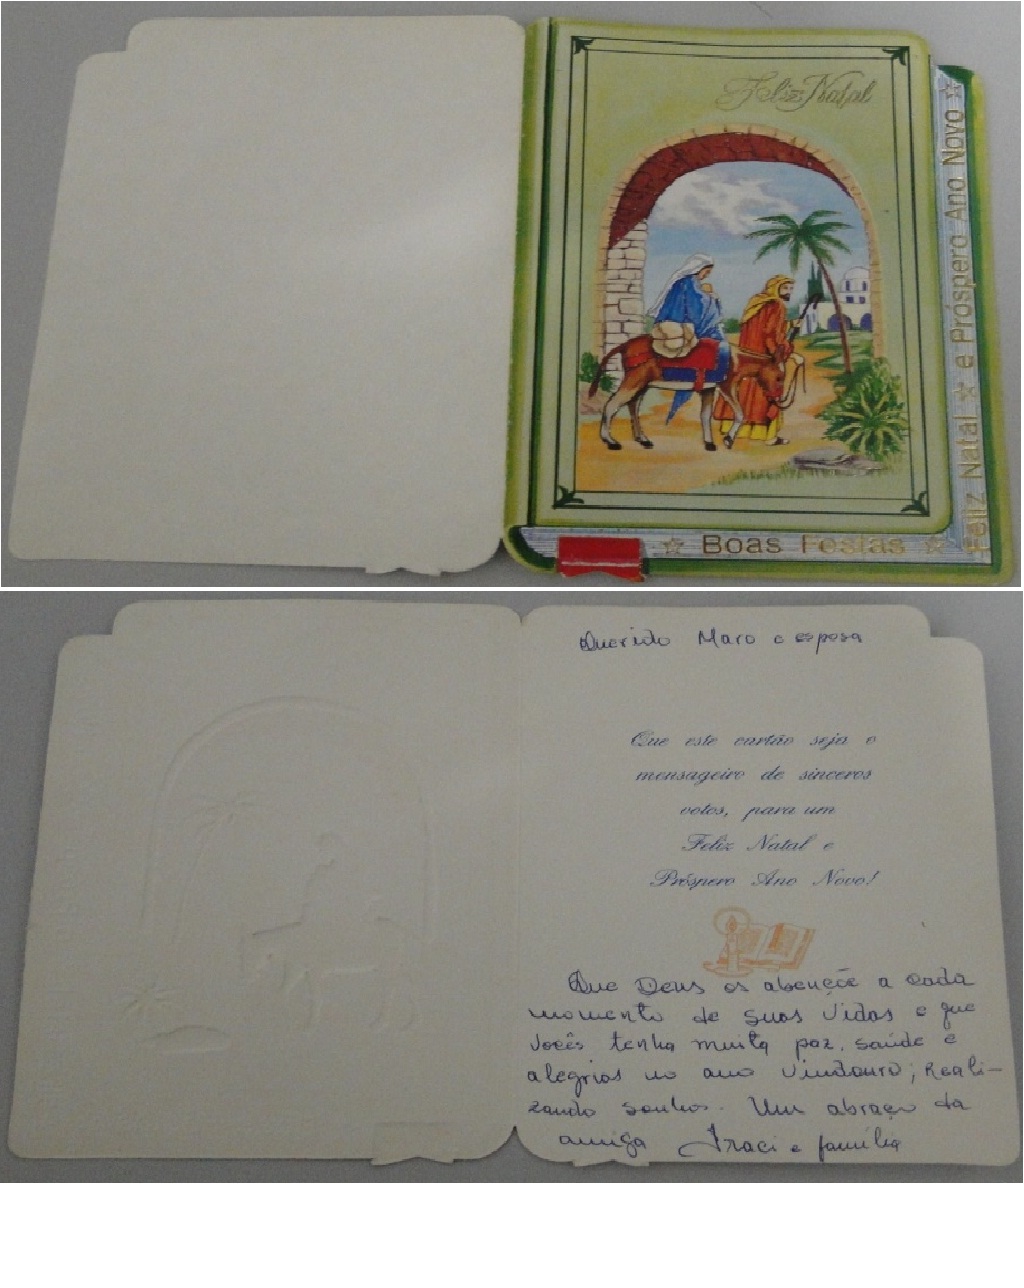 Feliz Natal
Feliz Natal ☆ e Próspero Ano Novo ☆
☆ Boas Festas ☆
Querido Maro e esposa
Que este cartão seja o
mensageiro de sinceros
votos, para um
Feliz Natal e
Próspero Ano Novo!
Que Deus os abençõe a cada
momento de suas vidas e que
vocês tenha muita paz, saúde e
alegrias no ano vindouro; Reali-
zando sonhos. Um abraço da
amiga Iraci e família